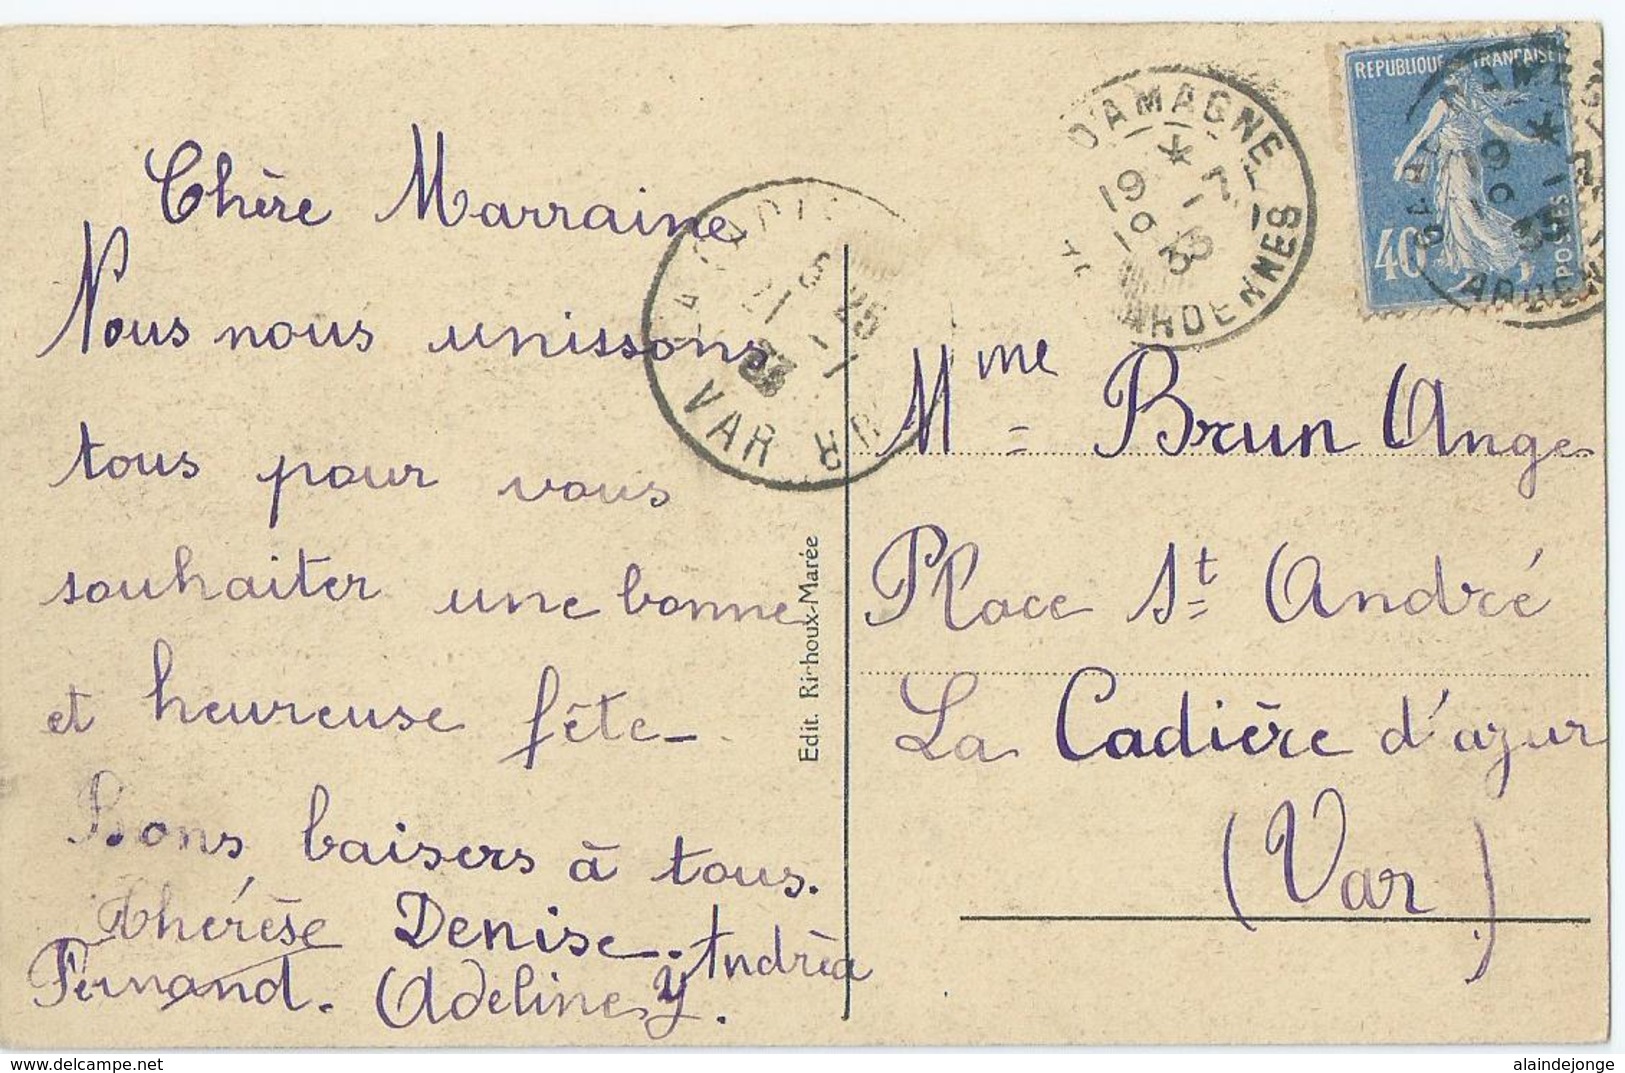 Chère Marraine
Nous nous unissons
tous pour vous
souhaiter une bonne
et heureuse fête_
Bons baisers à tous.
Thérèse Denise. Andrèa
Fernand. Adeline y.
Edit. Richoux-Marée
D'AMAGNE
19 * 7
19 - 1
33
ARDENNES
REPUBLIQUE FRANÇAISE
40
POSTES
GARE D'AMAGNE
19 *
19 1
33
ARDENN
LA CADIE
6 25
21 - 1
33
VAR
Mme Brun Ange
Place St André
La Cadière d'azur
(Var)
delcampe.net
alaindejonge